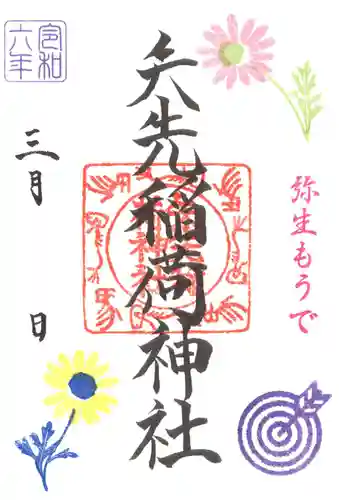 弥生もうで
矢先稲荷神社
令和
六年
三月
日